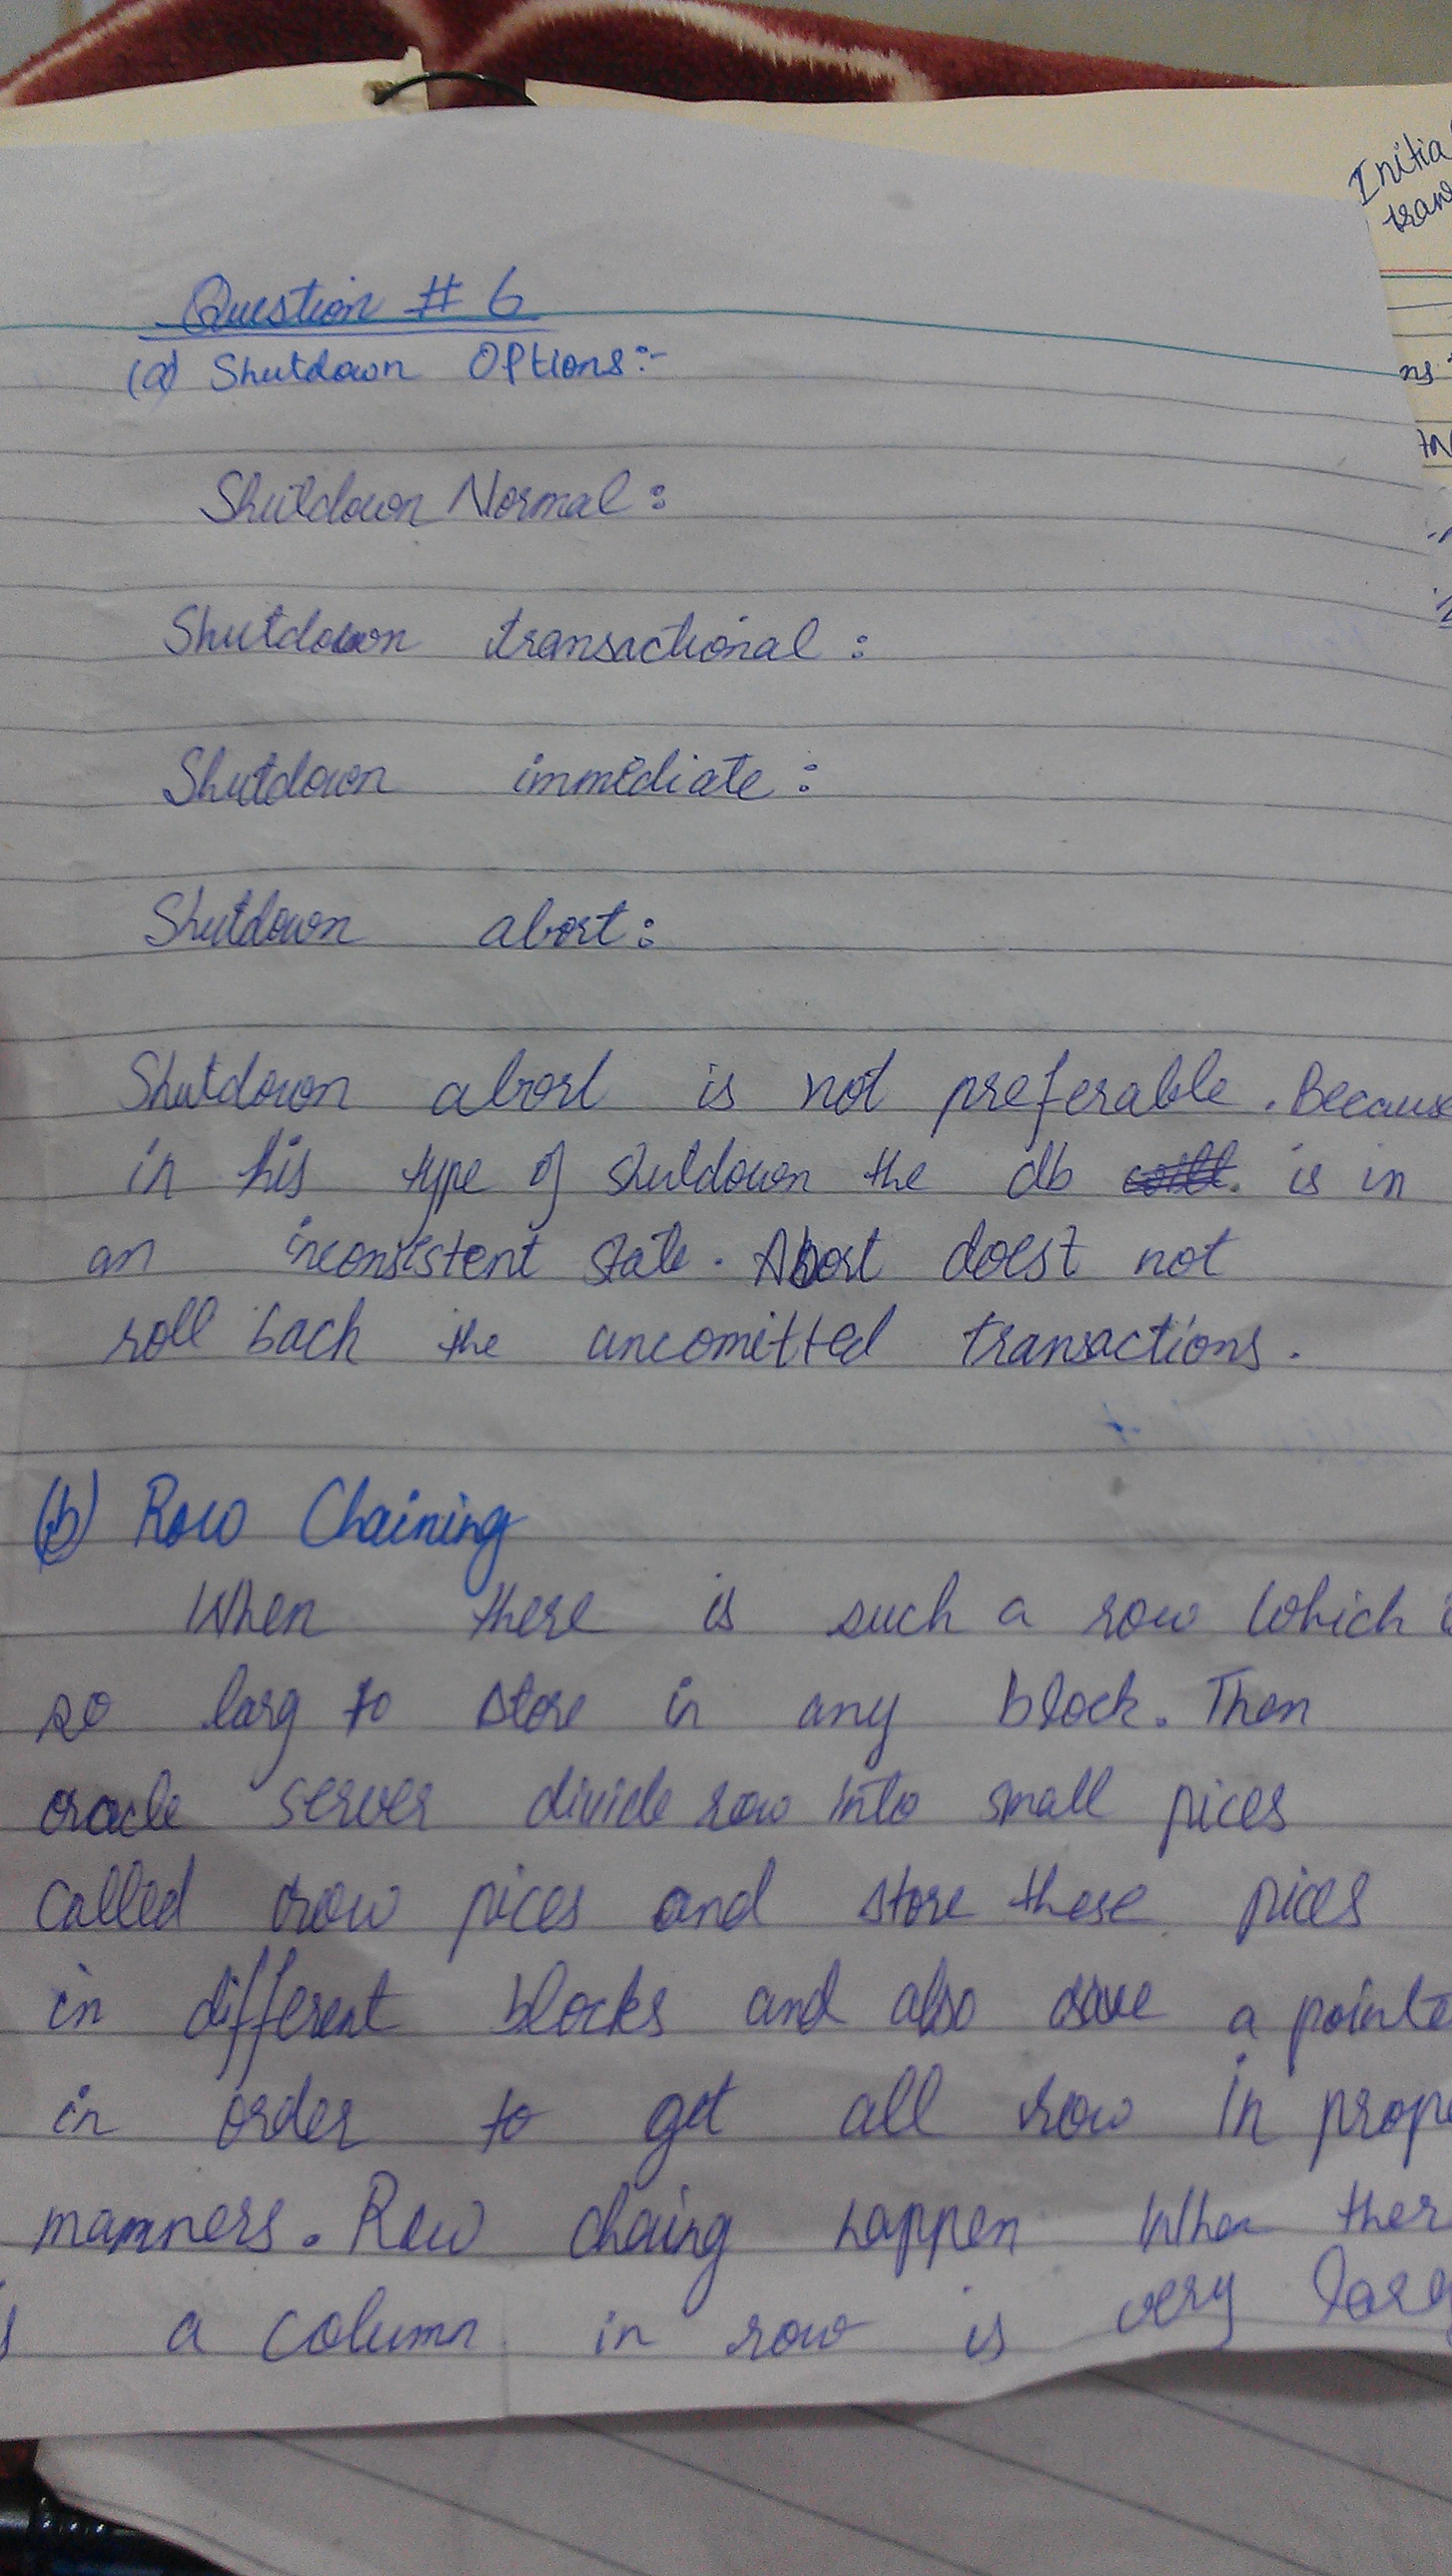 Initia
tran
Question # 6
(a) Shutdown Options:-
ns
Shutdown Normal:
Shutdown transactional:
Shutdown immediate:
Shutdown abort:
Shutdown abort is not preferable. Because
in his type of shutdown the db is in
an inconsistent state. Abort doest not
roll back the uncomitted transactions.
(b) Row Chaining
When there is such a row which i
so larg to store in any block. Then
oracle server divide row into small pices
called row pices and store these pices
in different blocks and also save a pointe
in order to get all row in prope
manners. Row chaing happen when ther
a column in row is very larg